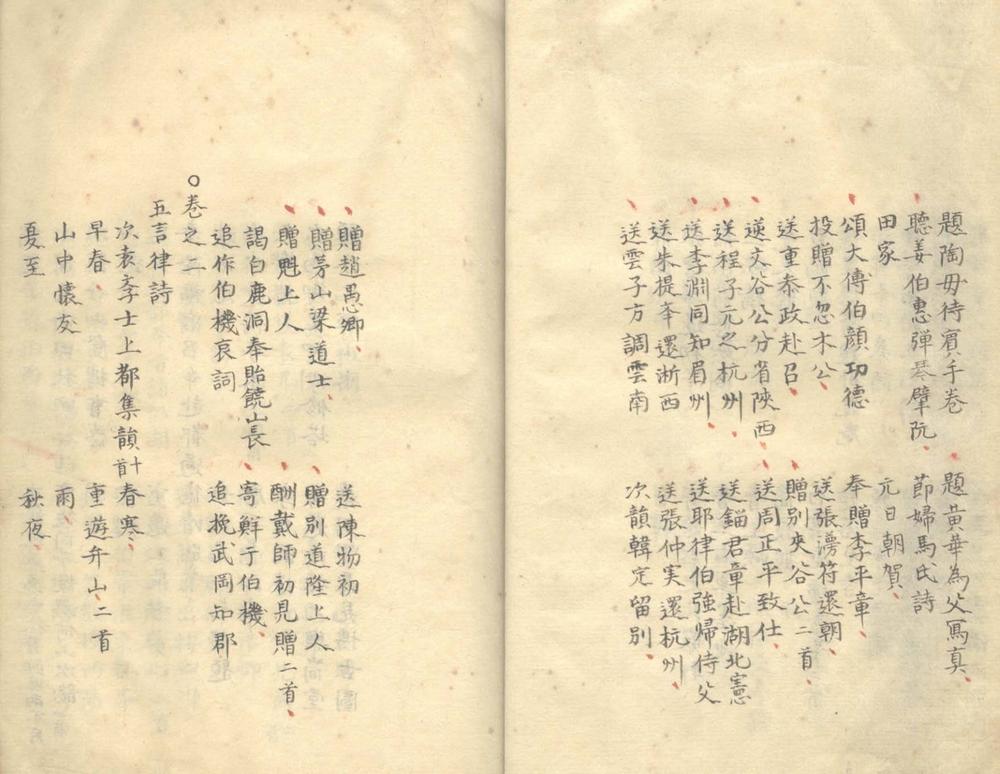 題陶毋待賓手卷 題黄華為父冩真
聽姜伯惠弾琴擘阮 節婦馬氏詩
田家 元日朝賀
頌大傅伯顔功德 奉贈李平章
投贈不忽木公 送張澇符還朝
送重泰政赴召 贈別夾谷公二首
送文谷公分省陝西 送周正平致仕
送程子元之杭州 送錙君章赴湖北憲
送李淵同知眉州 送耶律伯強帰侍父
送朱提夆還浙西 送張仲実還杭州
送雲子方調雲南 次韻韓定留別
贈趙愚卿 送陳物初
贈茅山梁道士 贈別道隆上人
贈魁上人 酬戴師初見贈二首
謁白鹿洞奉貽饒山長 寄鮮于伯機
追作伯機哀詞 追挽武岡知郡
〇卷之二
五言律詩
次袁李士上都集韻十首 春寒
早春 重遊弁山二首
山中懷友 雨
夏至 秋夜